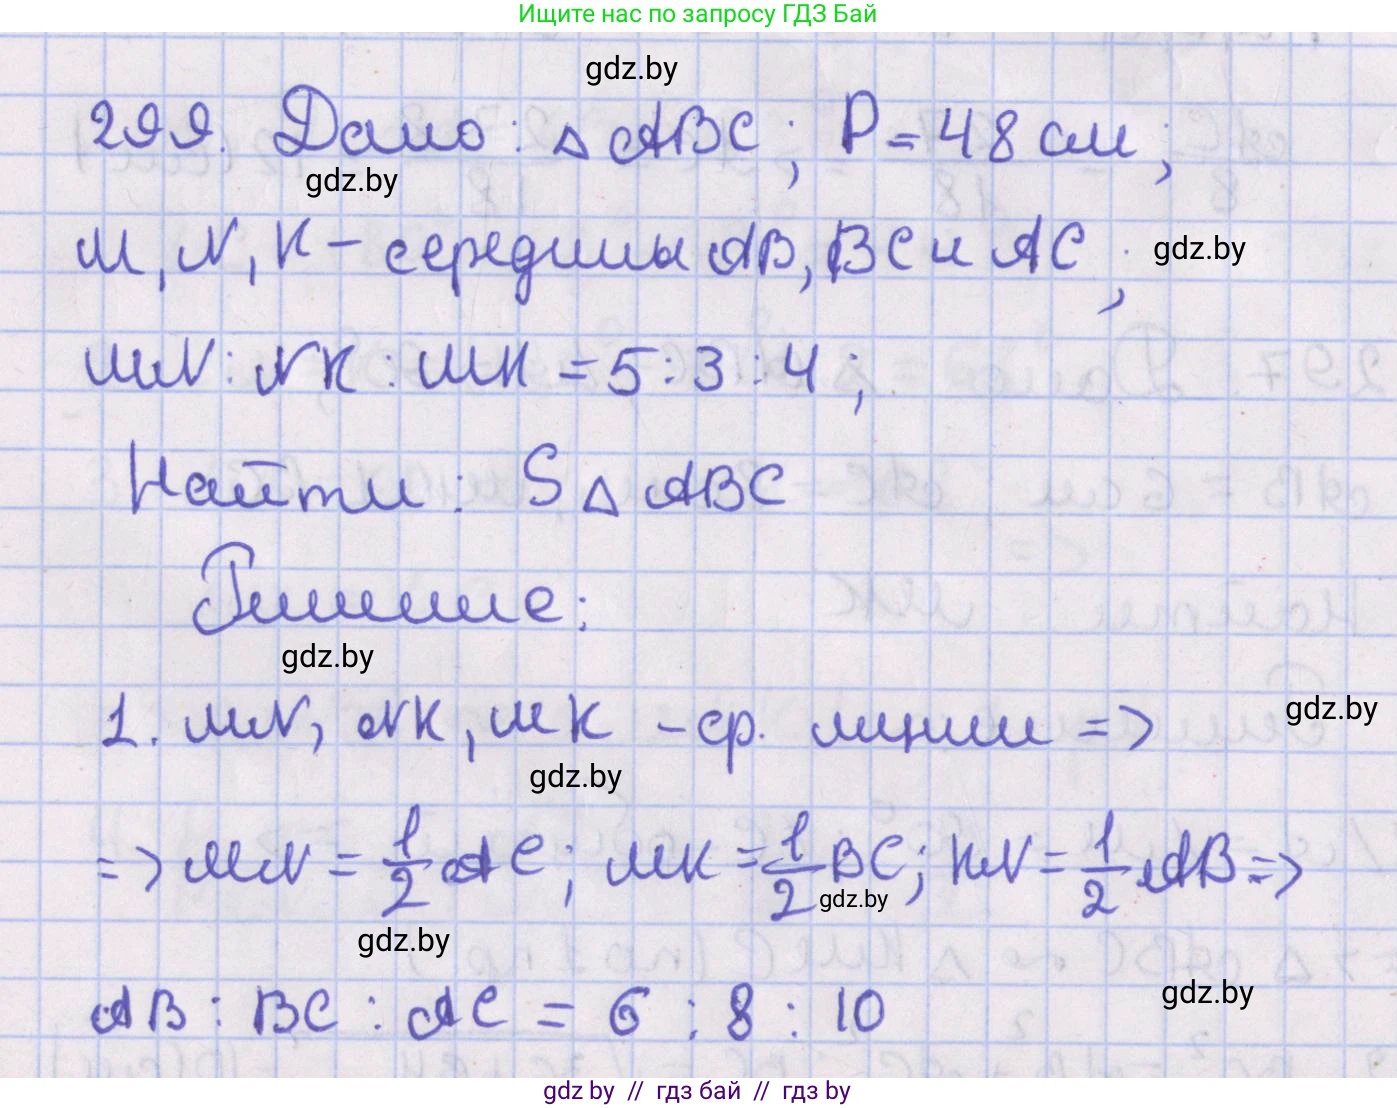 Ищите нас по запросу ГДЗ Бай
gdz.by
299. Дано: △ ABC; P = 48 см;
gdz.by
M, N, K – середины AB, BC и AC;
gdz.by
MN : NK : MK = 5 : 3 : 4;
Найти: S △ ABC
Решение:
gdz.by
1. MN, NK, MK – ср. линии =>
gdz.by
gdz.by
=> MN = 1/2 AC; MK = 1/2 BC; KN = 1/2 AB =>
gdz.by
gdz.by
AB : BC : AC = 6 : 8 : 10
gdz.by
gdz by // гдз бай // гдз by